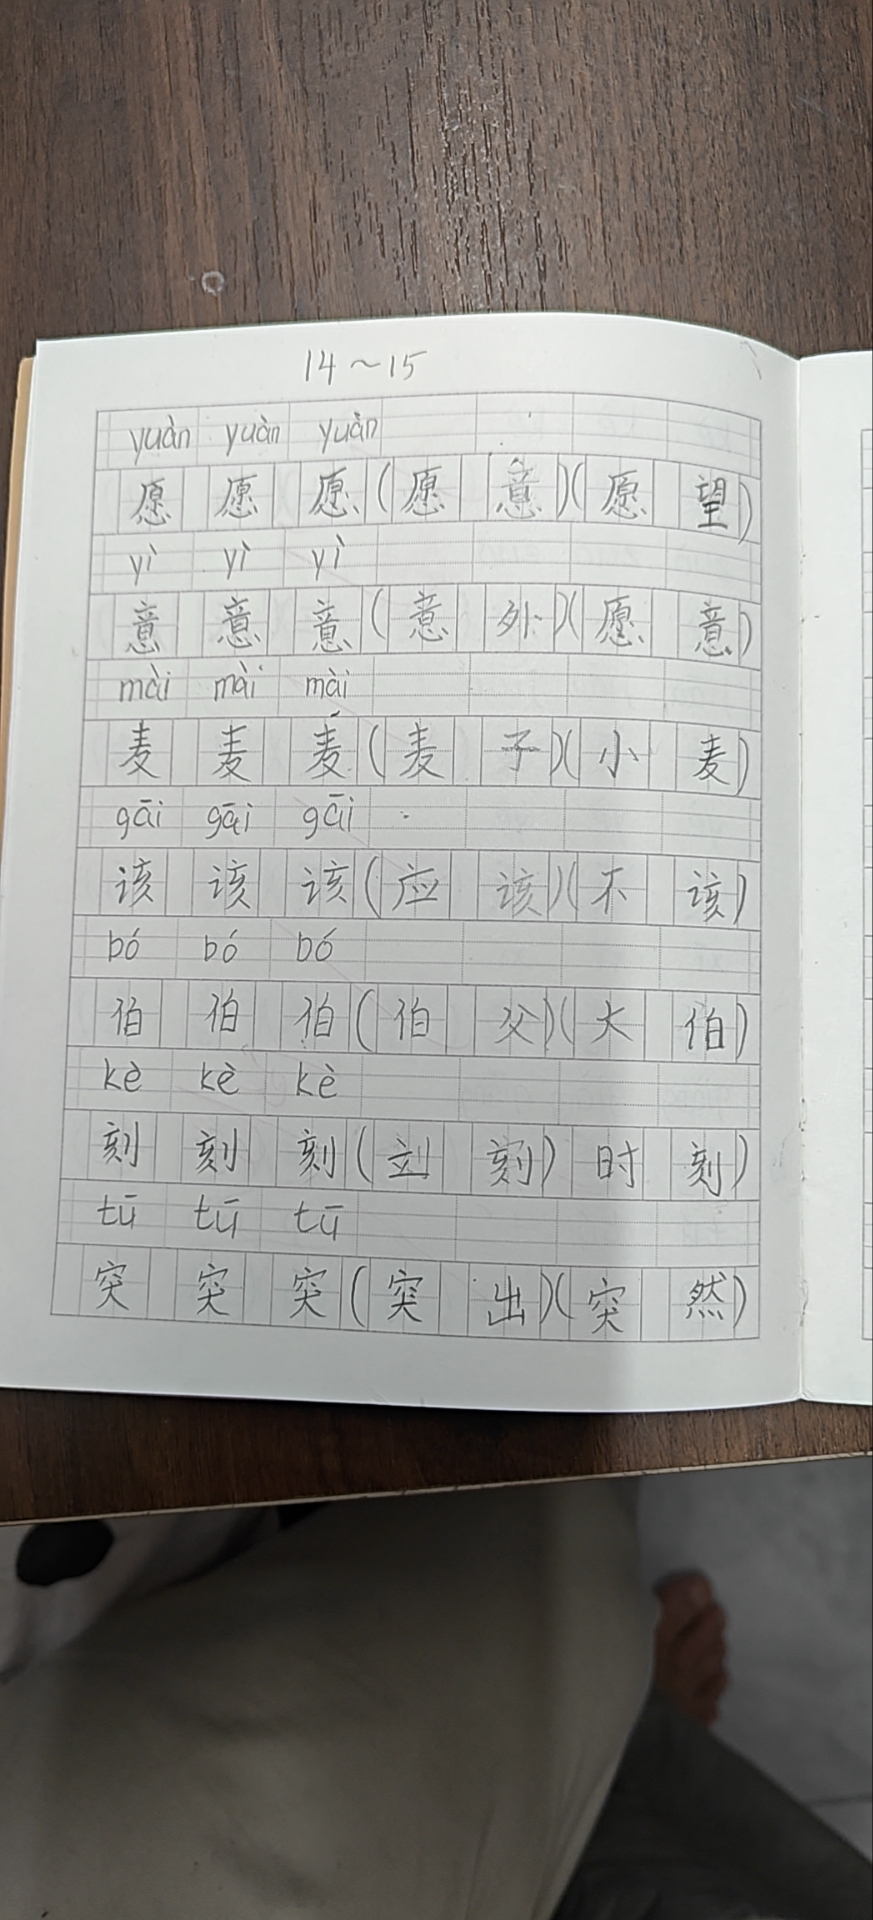 14～15
yuàn yuàn yuàn
愿愿愿(愿意)(愿望)
yì yì yì
意意意(意外)(愿意)
mài mài mài
麦麦麦(麦子)(小麦)
gāi gāi gāi
该该该(应该)(不该)
bó bó bó
伯伯伯(伯父)(大伯)
kè kè kè
刻刻刻(立刻)时刻)
tū tū tū
突突突(突出)(突然)